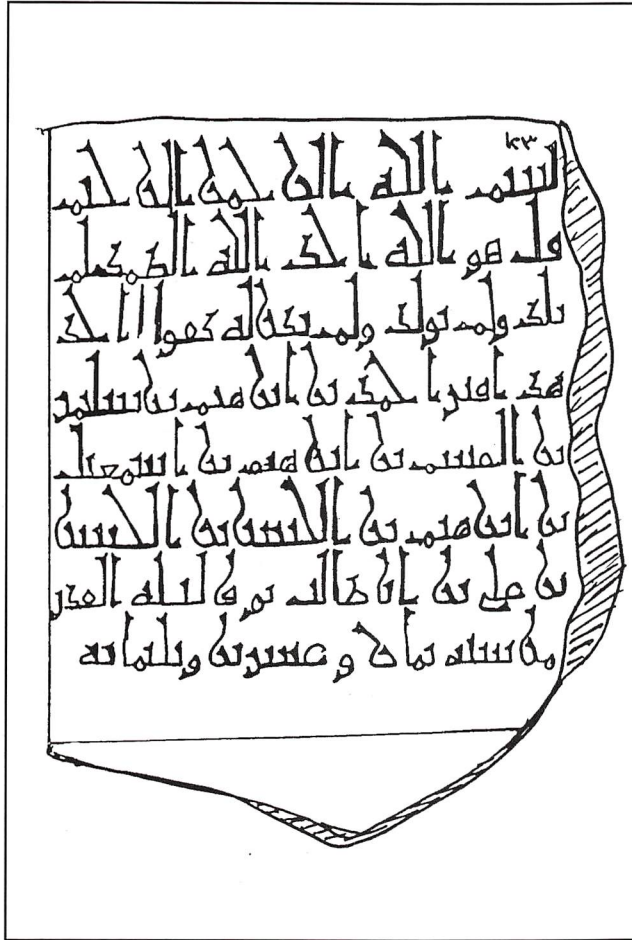 بسم الله الرحمن الرحيم
قل هو الله احد الله الصمد لم
يلد ولم يولد ولم يكن له كفوا احد
هذا قبر احمد بن ابرهيم بن
بن القسم بن ابرهيم بن اسمعيل
بن ابرهيم بن الحسن بن الحسن
بن علي بن ابي طالب توفي ليله القدر
من سنه ثمان وعشرين وثلثمائه